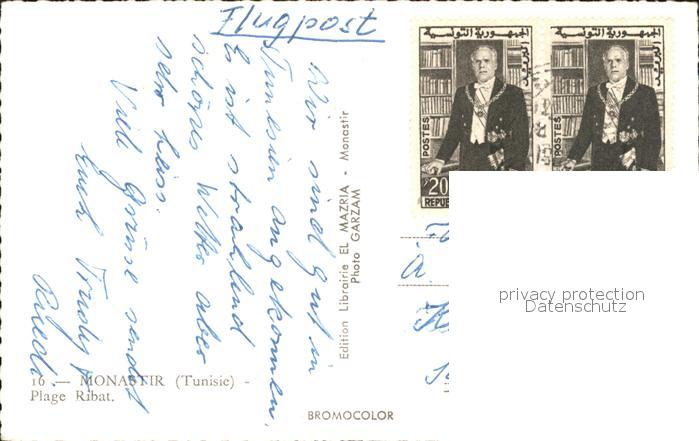 Flugpost
Wir sind gut in
Tunesien angekommen.
Es ist strahlend
schönes Wetter aber
sehr heiss.
Viele Grüsse sendet
Euch Trudy
الجمهورية التونسية
البريد
POSTES
20
REPUB
الجمهورية التونسية
البريد
POSTES
Edition Librairie EL MAZRIA - Monastir
Photo GARZAM
16 — MONASTIR (Tunisie) -
Plage Ribat.
BROMOCOLOR
privacy protection
Datenschutz